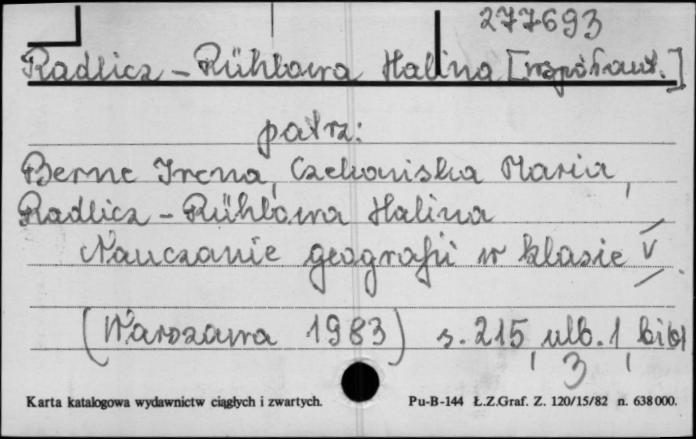 277693
Radlicz-Rühlowa Halina [współaut.]
patrz:
Berne Irena, Czekańska Maria,
Radlicz-Rühlowa Halina
Nauczanie geografii w klasie V.
(Warszawa 1983) s. 215, ulb. 1,
3
Karta katalogowa wydawnictw ciągłych i zwartych. Pu-B-144 Ł.Z.Graf. Z. 120/15/82 n. 638000.